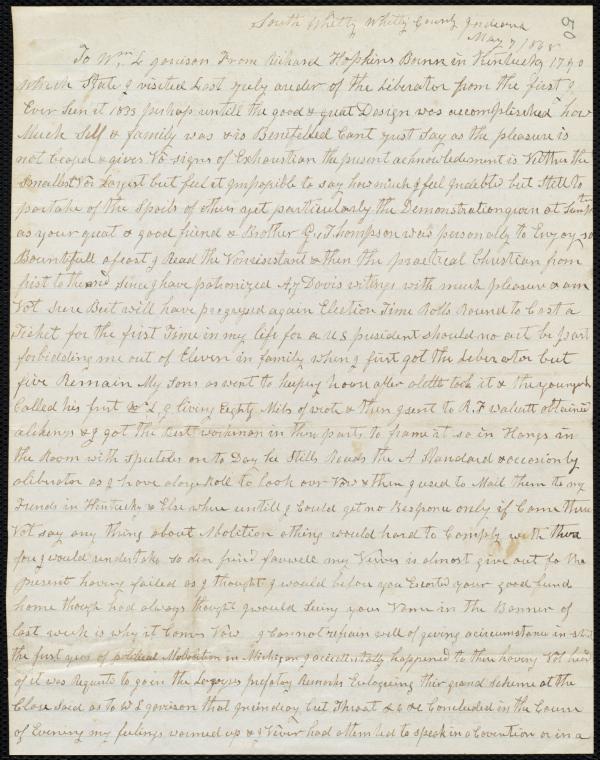 South Whitly Whitly County Indiana
May 7 / 1868
50
To Wm L garrison From Richard Hopkins Bornn in Kentucky 1790
which State I visited Last July a reder of the Liberator from the first I
Ever Seen it 1833 perhap untill the good & great Design was accomplished how
Much Self & family was & is Benefitted Cant just Say as the pleasure is
not Ceased & gives No signs of Exhaustian the present acknowledement is Neither the
Smallest Nor Largest but feel it Impossible to say how much I feel Indebted but Still to
partake of the Spoils of others yet particularly the Demonstration given at
as your great & good friend & Brother G. Thompson was personally to Enjoy so
Bountifull a feast I Read the Nonresistant & then the practical Christian from
first to the end since I have patronized A J Davis writings with much pleasure & am
Not Sure But will have progressed again Election Time Rolls Round to Cast a
Ticket for the first Time in my life for a US president should no act be past
forbidding me out of Eleven in family when I first got the Liberator but
five Remain My Sons as went to keeping hoose after a left took it & the youngest
Called his first W L g living Eighty Mils of wrote & then I sent to R. F walcutt obtained
a likeness & I got the Best workman in these parts to frame it so in Hangs in
the Room with Spectcles on to Day he Stills Reads the A Standard & occasionly
a liberator as I have a long Roll to look over Now & then I used to Mail them to my
Friends in Kentucky & Else where untill I Could get no Response only if Came there
Not say any thing about Abolition a thing would hard to Comply with
you I would undertake so dear friend farewell my Nerves is almost give out for the
present having failed as I thought I would before you Escorted your good friend
home though had always thought I would Seing your Name in the Banner of
last week is why it Comes Now I Cannot refrain well of giving a circumstance in
the first year of political Abolition in Michigan I accidentally happened to there having Not heard
of it was Requsto to gain the prefatory Remarks Eulogising their grand scheme at the
Close said as to W L garrison that incendiary Cut Throat & c & c Concluded in the Course
of Evening my feelings warmed up & I Never had attemted to speak in a Covention or in a